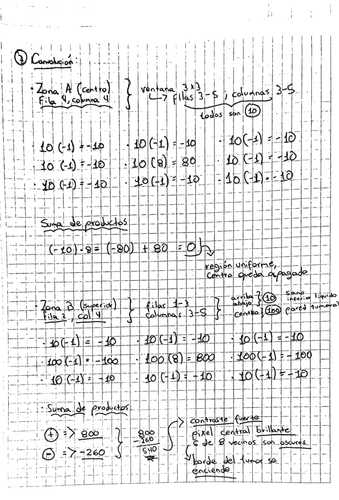 ② Convolución:
· Zona A (centro) } ventana 3x3
Fila 4, columna 4 → filas 3-5, columnas 3-5
todos son 10
10 (-1) = -10 · 10(-1) = -10 · 10(-1) = -10
· 10 (-1) = -10 · 10 (8) = 80 · 10 (-1) = -10
· 10 (-1) = -10 · 10(-1) = -10 · 10(-1) = -10
Suma de productos
(-10)·8 = (-80) + 80 = 0
región uniforme,
centro queda apagado
· Zona B (superior) } filas 1-3 } arriba } 10 sano
fila 2, col 4 columnas 3-5 abajo interior líquido
centro } 100 pared tumoral
· 10(-1) = -10 · 10(-1) = -10 · 10(-1) = -10
· 100(-1) = -100 · 100(8) = 800 · 100(-1) = -100
· 10 (-1) = -10 · 10(-1) = -10 · 10(-1) = -10
· Suma de productos:
⊕ => 800 } 800
⊖ => -260 -260
540
contraste fuerte
pixel central brillante
6 de 8 vecinos son oscuros
borde del tumor se
enciende